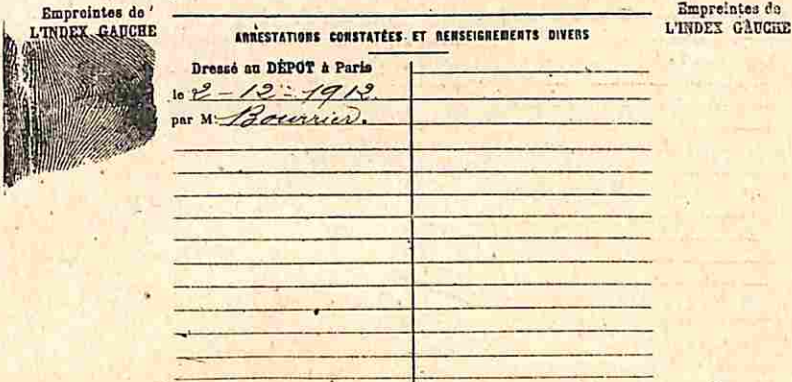 Empreintes de
L'INDEX GAUCHE
ARRESTATIONS CONSTATÉES ET RENSEIGNEMENTS DIVERS
Dressé au DÉPOT à Paris
le 2-12-1912.
par M. Bourrier.
Empreintes de
L'INDEX GAUCHE